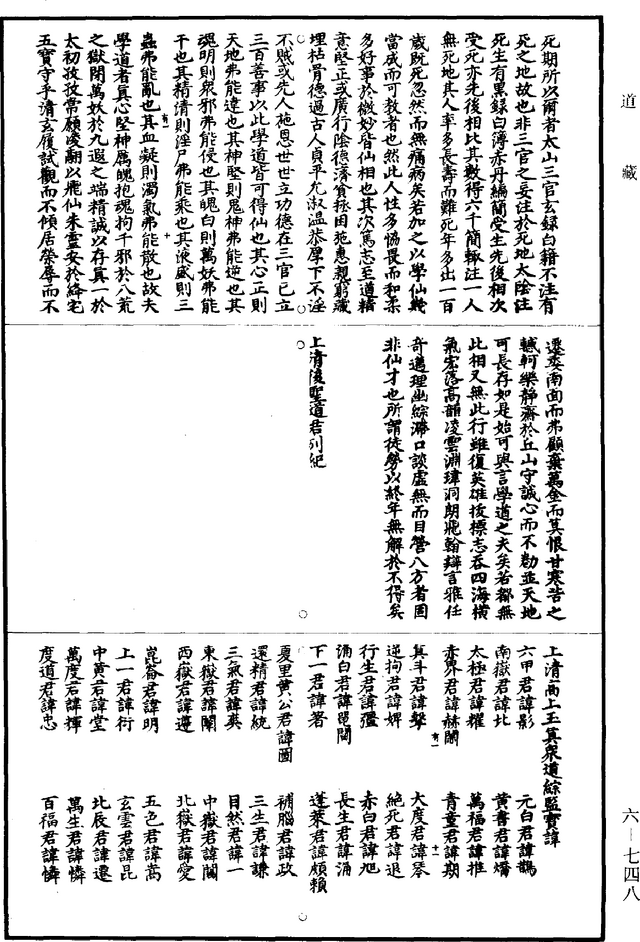 道藏
死期所以爾者太山三官玄録白籍不注有
死之地故也非三官之妄注於死地太陰注
死生有黑録白簿赤丹編簡受生先後相次
受死亦先後相比其數得六千簡輙注一人
無死地其人率多長壽而難死年多出一百
歲既死忽然而無痛病矣若加之以學仙幾
當成而可教者也然此人性多協畏而和柔
多好事於微妙皆仙相也其次篤志至道精
意堅正或廣行陰德濟貧拯困施惠親窮藏
埋枯骨德過古人貞平允淑温恭摩下不淫
不賊或先人施恩世世立功德在三官已立
三百善事以此學道皆可得仙也其心正則
天地弗能違也其神堅則鬼神弗能逆也其
魂明則衆邪弗能侵也其魄白則萬妖弗能
干也其精清則淫尸弗能乘也其液盛則三
蟲弗能亂也其血凝則濁氣弗能散也故夫
學道者真心堅神厲魄抱魂拘千邪於八荒
之獄閉萬妖於九遐之端精誠以存真一於
太初孜孜常願凌翮以飛仙朱靈安於絳宅
五寶守乎清玄履試觀而不傾居榮辱而不
遷委南面而弗顧棄萬金而莫恨甘寒苦之
轗軻樂靜齋於丘山守誠心而不勌並天地
可長存如是始可與言學道之夫矣若都無
此相又無此行雖復英雄拔標志吞四海橫
氣宏落高韻凌雲淵瑋洞朗飛翰辯言雅任
奇邁理幽綜滯口談虛無而目營八方者固
非仙才也所謂徒勞以終年無解於不得矣
上清後聖道君列紀
上清高上玉真衆道綜監寶諱
六甲君諱影 元白君諱鸖
南嶽君諱北 黃書君諱燔
太極君諱耀 萬福君諱推
赤界君諱赫闕 青童君諱期
真斗君諱擊 大度君諱叅
逆拘君諱婢 絶死君諱退
行生君諱彊 赤白君諱旭
涌白君諱邕閱 長生君諱涌
下一君諱著 蓬萊君諱頗賴
夏里黃公君諱圖 補腦君諱政
還精君諱統 三生君諱謙
三氣君諱英 目然君諱一
東嶽君諱闡 中嶽君諱閫
西嶽君諱遵 北嶽君諱愛
崑崙君諱明 五色君諱蒿
上一君諱行 玄雲君諱昆
中黃君諱堂 北辰君諱遷
萬度君諱揮 萬生君諱憐
度道君諱忠 百福君諱憐
六—七四八